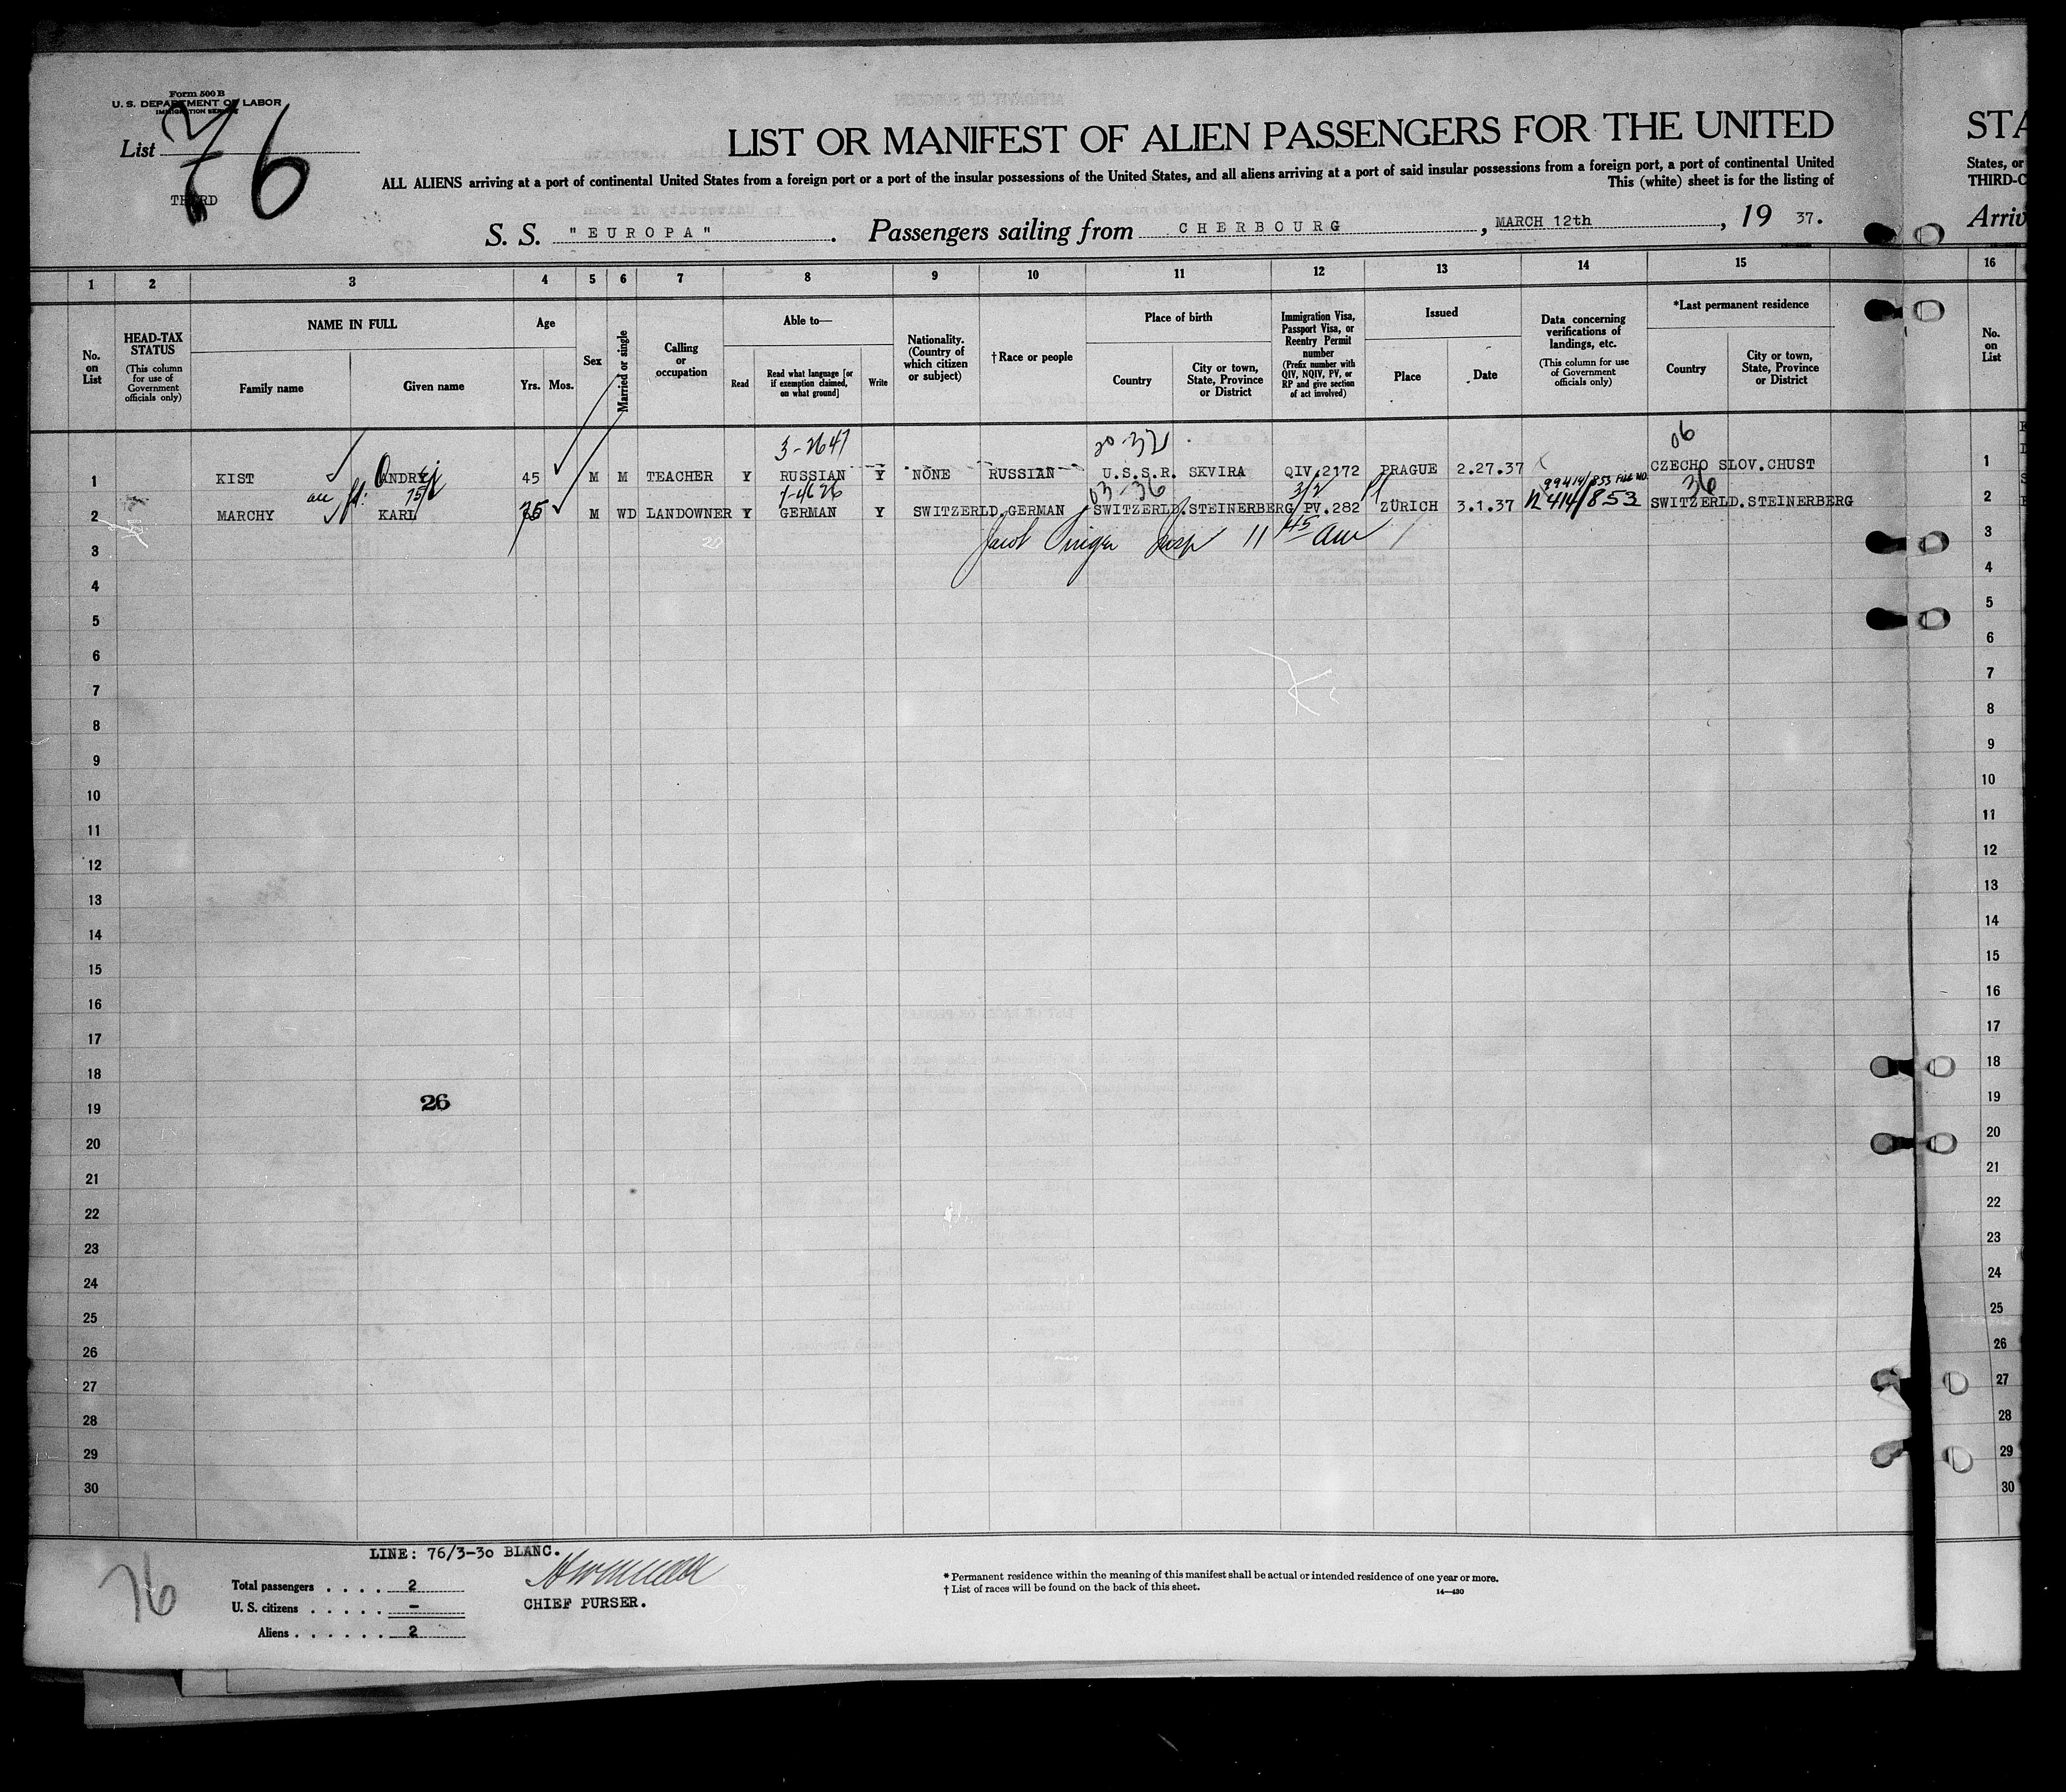 Form 500 B
U. S. DEPARTMENT OF LABOR
IMMIGRATION SERVICE
List 76
THIRD
LIST OR MANIFEST OF ALIEN PASSENGERS FOR THE UNITED
STA
ALL ALIENS arriving at a port of continental United States from a foreign port or a port of the insular possessions of the United States, and all aliens arriving at a port of said insular possessions from a foreign port, a port of continental United
States, or
This (white) sheet is for the listing of
THIRD-C
S. S. "EUROPA". Passengers sailing from CHERBOURG, MARCH 12th, 19 37.
Arriv
1 2 3 4 5 6 7 8 9 10 11 12 13 14 15 16
No. on List
HEAD-TAX STATUS
(This column for use of Government officials only)
NAME IN FULL
Family name
Given name
Age
Yrs. Mos.
Sex
Married or single
Calling or occupation
Able to—
Read
Read what language [or if exemption claimed, on what ground]
Write
Nationality. (Country of which citizen or subject)
† Race or people
Place of birth
Country
City or town, State, Province or District
Immigration Visa, Passport Visa, or Reentry Permit number
(Prefix number with QIV, NQIV, PV, or RP and give section of act involved)
Issued
Place
Date
Data concerning verifications of landings, etc.
(This column for use of Government officials only)
*Last permanent residence
Country
City or town, State, Province or District
No. on List
3-2647 20-32 06
1 KIST ANDREJ 45 M M TEACHER Y RUSSIAN Y NONE RUSSIAN U.S.S.R. SKVIRA QIV.2172 PRAGUE 2.27.37 CZECHO SLOV. CHUST 1
75 03-36 3/2 99414/853 FILE NO. 36
2 MARCHY KARL 75 M WD LANDOWNER Y GERMAN Y SWITZERLD. GERMAN SWITZERLD. STEINERBERG PV.282 ZÜRICH 3.1.37 414/853 SWITZERLD. STEINERBERG 2
Jacob Insp 11 45 am
3 3
4 4
5 5
6 6
7 7
8 8
9 9
10 10
11 11
12 12
13 13
14 14
15 15
16 16
17 17
18 18
26
19 19
20 20
21 21
22 22
23 23
24 24
25 25
26 26
27 27
28 28
29 29
30 30
LINE: 76/3-30 BLANC.
76
Total passengers . . . . 2
U. S. citizens . . . . . –
Aliens . . . . . . 2
CHIEF PURSER.
* Permanent residence within the meaning of this manifest shall be actual or intended residence of one year or more.
† List of races will be found on the back of this sheet.
14—430